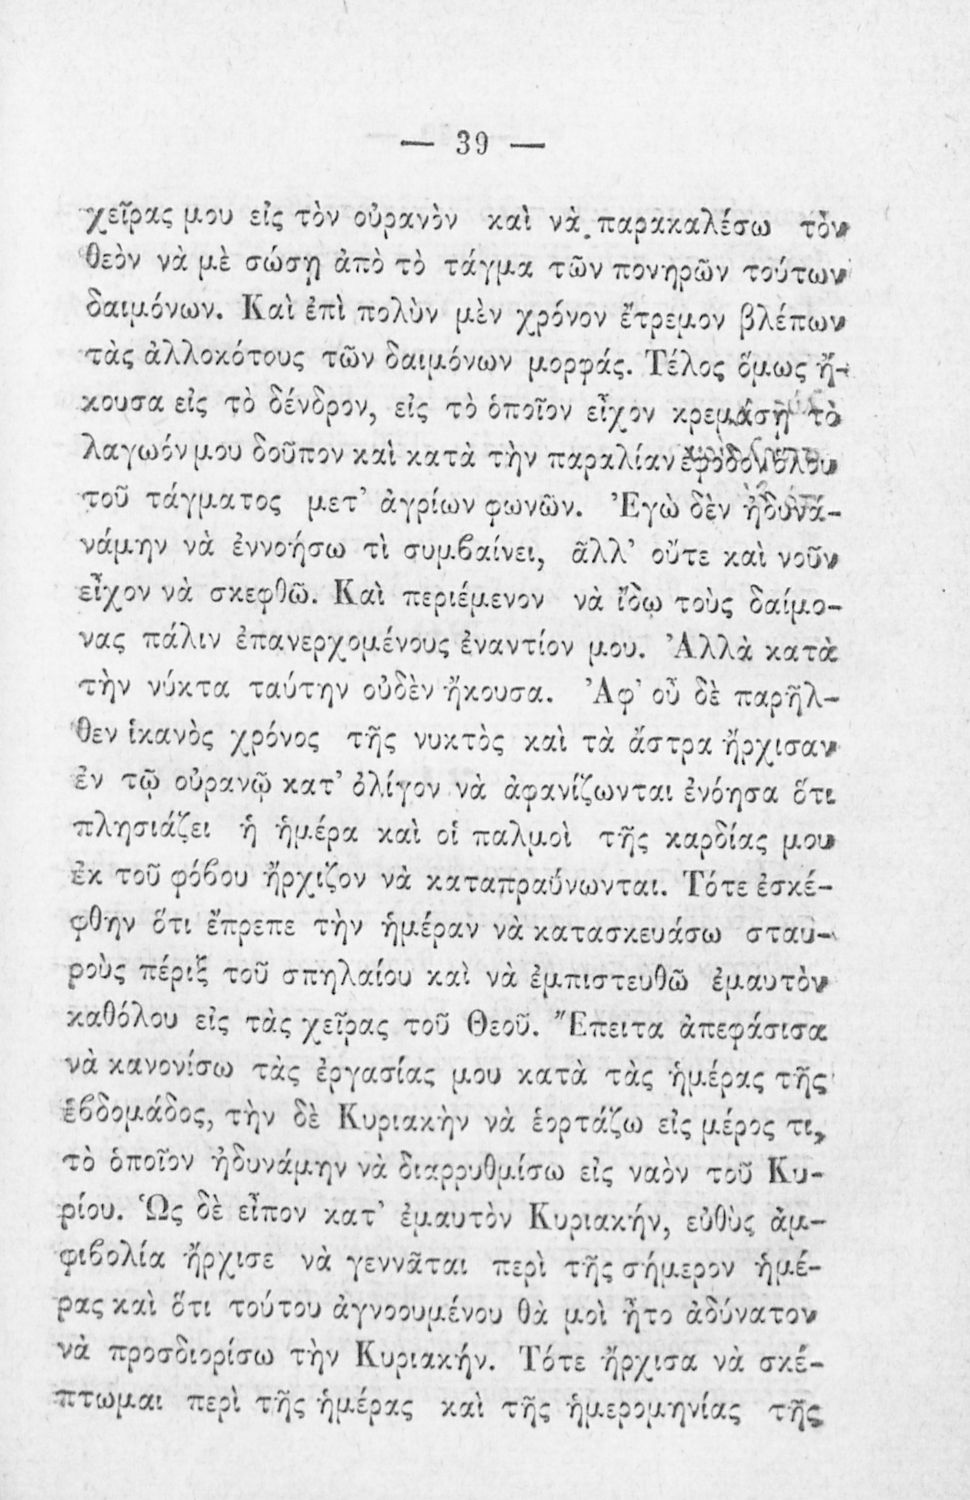 — 39 —
χεῖρας μου εἰς τὸν οὐρανὸν καὶ νὰ παρακαλέσω τὸν
θεὸν νὰ μὲ σώσῃ ἀπὸ τὸ τάγμα τῶν πονηρῶν τούτων
δαιμόνων. Καὶ ἐπὶ πολὺν μὲν χρόνον ἔτρεμον βλέπων
τὰς ἀλλοκότους τῶν δαιμόνων μορφάς. Τέλος ὅμως ἤ-
κουσα εἰς τὸ δένδρον, εἰς τὸ ὁποῖον εἶχον κρεμάσῃ τὸ
λαγωόν μου δοῦπον καὶ κατὰ τὴν παραλίαν ἔφοδον ὅλου
τοῦ τάγματος μετ’ ἀγρίων φωνῶν. Ἐγὼ δὲν ἠδυνά-
νάμην νὰ ἐννοήσω τὶ συμβαίνει, ἀλλ’ οὔτε καὶ νοῦν
εἶχον νὰ σκεφθῶ. Καὶ περιέμενον νὰ ἴδω τοὺς δαίμο-
νας πάλιν ἐπανερχομένους ἐναντίον μου. Ἀλλὰ κατὰ
τὴν νύκτα ταύτην οὐδὲν ἤκουσα. Ἀφ’ οὗ δὲ παρῆλ-
θεν ἱκανὸς χρόνος τῆς νυκτὸς καὶ τὰ ἄστρα ἤρχισαν
ἐν τῷ οὐρανῷ κατ’ ὀλίγον νὰ ἀφανίζωνται ἐνόησα ὅτι
πλησιάζει ἡ ἡμέρα καὶ οἱ παλμοὶ τῆς καρδίας μου
ἐκ τοῦ φόβου ἤρχιζον νὰ καταπραΰνωνται. Τότε ἐσκέ-
φθην ὅτι ἔπρεπε τὴν ἡμέραν νὰ κατασκευάσω σταυ-
ροὺς πέριξ τοῦ σπηλαίου καὶ νὰ ἐμπιστευθῶ ἐμαυτὸν
καθόλου εἰς τὰς χεῖρας τοῦ Θεοῦ. Ἔπειτα ἀπεφάσισα
νὰ κανονίσω τὰς ἐργασίας μου κατὰ τὰς ἡμέρας τῆς
ἑβδομάδος, τὴν δὲ Κυριακὴν νὰ ἑορτάζω εἰς μέρος τι,
τὸ ὁποῖον ἠδυνάμην νὰ διαρρυθμίσω εἰς ναὸν τοῦ Κυ-
ρίου. Ὡς δὲ εἶπον κατ’ ἐμαυτὸν Κυριακήν, εὐθὺς ἀμ-
φιβολία ἤρχισε νὰ γεννᾶται περὶ τῆς σήμερον ἡμέ-
ρας καὶ ὅτι τούτου ἀγνοουμένου θὰ μοὶ ἦτο ἀδύνατον
νὰ προσδιορίσω τὴν Κυριακήν. Τότε ἤρχισα νὰ σκέ-
πτωμαι περὶ τῆς ἡμέρας καὶ τῆς ἡμερομηνίας τῆς